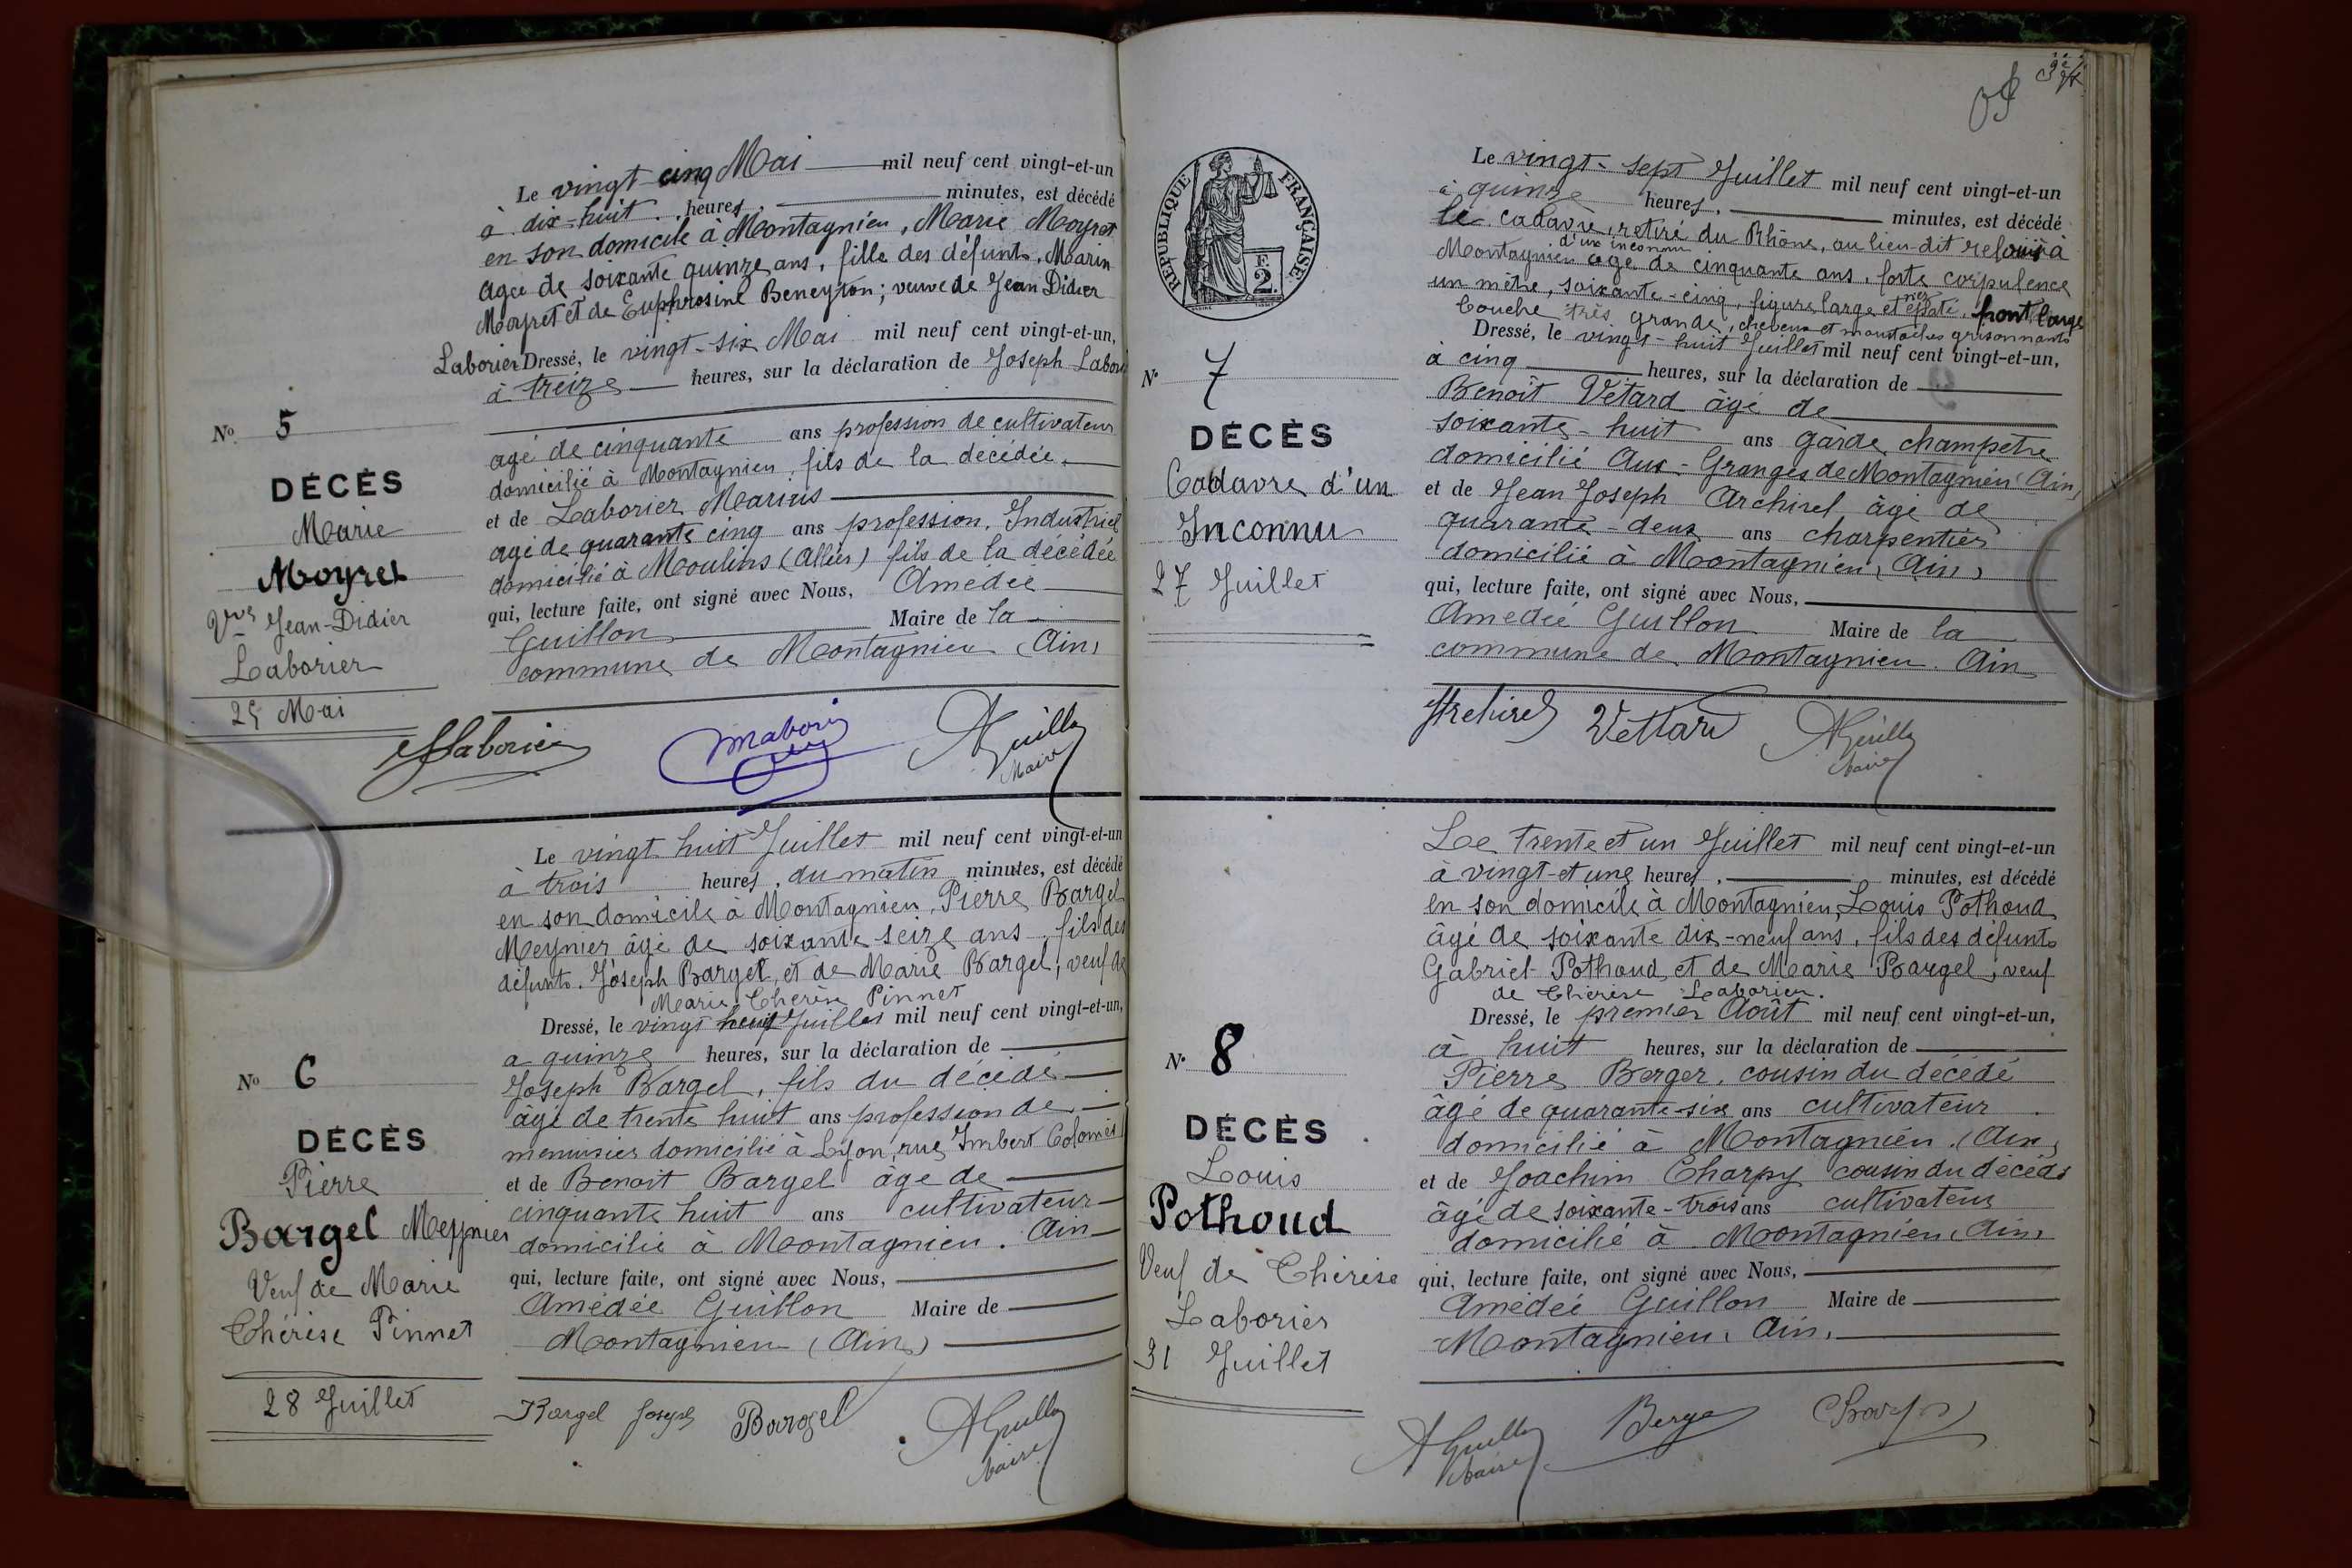 Le vingt-cinq Mai mil neuf cent vingt-et-un
à dix-huit heures, minutes, est décédé
en son domicile à Montagnieu, Marie Moyret
agée de soixante quinze ans, fille des défunts, Marin
Moyret et de Euphrosine Beneyton; veuve de Jean Didier
Laborier Dressé, le vingt-six Mai mil neuf cent vingt-et-un,
à treize heures, sur la déclaration de Joseph Labori
agé de cinquante ans profession de cultivateur
domicilié à Montagnieu, fils de la décédée.
et de Laborier Marius
agé de quarante cinq ans profession, Industriel
domicilié à Moulins (Allier) fils de la décédée
qui, lecture faite, ont signé avec Nous, Amédée
Guillon Maire de la
commune de Montagnieu (Ain)
No 5
DÉCÈS
Marie
Moyret
Vve Jean-Didier
Laborier
25 Mai
Laborier
AGuillon
Maire
Le vingt huit Juillet mil neuf cent vingt-et-un
à trois heures, du matin minutes, est décédé
en son domicile à Montagnieu, Pierre Bargel
Meynier âgé de soixante seize ans, fils des
défunts. Joseph Bargel, et de Marie Bargel; veuf de
Marie Thérèse Pinnet
Dressé, le vingt huit Juillet mil neuf cent vingt-et-un,
a quinze heures, sur la déclaration de
Joseph Bargel, fils du décédé
âgé de trente huit ans profession de
menuisier domicilié à Lyon, rue Imbert Colomès
et de Benoit Bargel âgé de
cinquante huit ans cultivateur
domicilié à Montagnieu. Ain
qui, lecture faite, ont signé avec Nous,
Amédée Guillon Maire de
Montagnieu (Ain)
No 6
DÉCÈS
Pierre
Bargel Meynier
Veuf de Marie
Thérèse Pinnet
28 Juillet
Bargel Joseph Bargel AGuillon
Maire
RÉPUBLIQUE FRANÇAISE
F.
2.
Le vingt-sept Juillet mil neuf cent vingt-et-un
à quinze heures, minutes, est décédé
le cadavre, retiré du Rhône, au lieu dit à
d'un inconnu
Montagnieu agé de cinquante ans, forte corpulence
un mètre, soixante-cinq, figure large et nez épaté, front large
bouche très grande, cheveux et moustaches grisonnants
Dressé, le vingt-huit Juillet mil neuf cent vingt-et-un,
à cinq heures, sur la déclaration de
Benoît Vétard âgé de
soixante-huit ans garde champêtre
domicilié Aux-Granges de Montagnieu (Ain)
et de Jean Joseph Archirel, âgé de
quarante-deux ans charpentier
domicilié à Montagnieu, (Ain)
qui, lecture faite, ont signé avec Nous,
Amédée Guillon Maire de la
commune de Montagnieu. Ain
No 7
DÉCÈS
Cadavre d'un
Inconnu
27 Juillet
Archirel Vettard AGuillon
Maire
Le trente et un Juillet mil neuf cent vingt-et-un
à vingt-et-une heures, minutes, est décédé
en son domicile à Montagnieu, Louis Pothoud
âgé de soixante dix-neuf ans, fils des défunts
Gabriel Pothoud, et de Marie Bargel, veuf
de Thérèse Laborier.
Dressé, le premier Août mil neuf cent vingt-et-un,
à huit heures, sur la déclaration de
Pierre Berger, cousin du décédé
âgé de quarante-six ans cultivateur
domicilié à Montagnieu, (Ain)
et de Joachim Charpy cousin du décédé
âgé de soixante-trois ans cultivateur
domicilié à Montagnieu, (Ain)
qui, lecture faite, ont signé avec Nous,
Amédée Guillon Maire de
Montagnieu, Ain,
No 8
DÉCÈS
Louis
Pothoud
Veuf de Thérèse
Laborier
31 Juillet
AGuillon
Maire
Berger Charpy